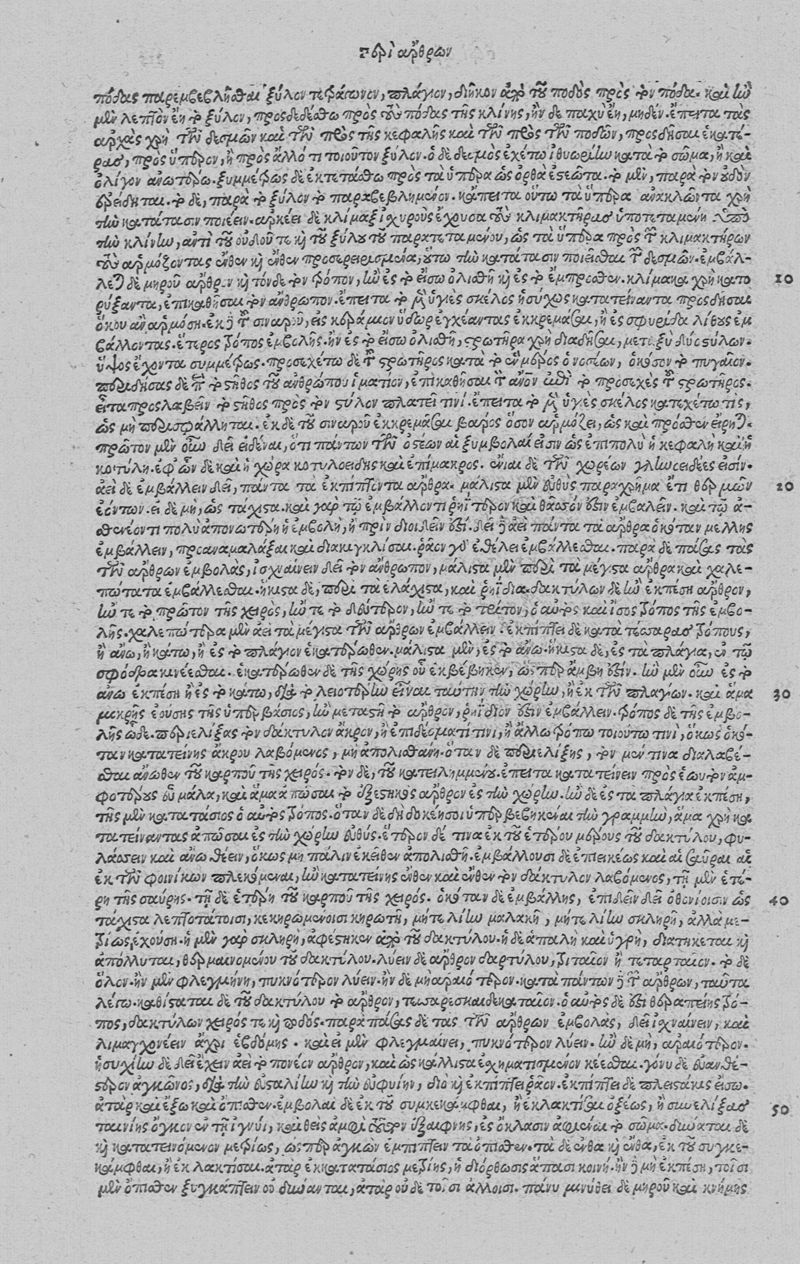 περὶ ἄρθρων
πόδας παρεμβεβλῆσθαι ξύλον τετράγωνον, πλάγιον, διῆκον ἀπὸ τοῦ ποδὸς πρὸς τὸν πόδα. καὶ ἢν
μὲν λεπτὸν ἔῃ τὸ ξύλον, προσδεδέσθω πρὸς τοὺς πόδας τῆς κλίνης, ἢν δὲ παχὺ ἔῃ, μηδέν. ἔπειτα τὰς
ἀρχὰς χρὴ τῶν δεσμῶν καὶ τῶν πρὸς τῆς κεφαλῆς καὶ τῶν πρὸς τῶν ποδῶν, προσδῆσαι ἑκατέ-
ρας, πρὸς ὕπερον, ἢ πρὸς ἄλλό τι τοιοῦτον ξύλον. ὁ δὲ δεσμὸς ἐχέτω ἰθυωρίην κατὰ τὸ σῶμα, ἢ καὶ
ὀλίγον ἀνωτέρω. ξυμμέτρως δὲ ἐκτετάσθω πρὸς τὰ ὕπερα ὡς ὀρθὰ ἑστεῶτα. τὸ μὲν, παρὰ τὸν οὐδὸν
ἐρείδηται. τὸ δὲ, παρὰ τὸ ξύλον τὸ παραβεβλημένον. κἄπειτα οὕτω τὰ ὕπερα ἀνακλῶντα χρὴ
τὴν κατάτασιν ποιέειν. ἀρκεῖ δὲ κλίμαξ ἰσχυροὺς ἔχουσα τοὺς κλιμακτῆρας ὑποτεταμένη ὑπὸ
τὴν κλίνην, ἀντὶ τοῦ οὐδοῦ τε καὶ τοῦ ξύλου τοῦ παρατεταμένου, ὡς τὰ ὕπερα πρὸς τῶν κλιμακτήρων
τοὺς ἁρμόζοντας ἔνθεν καὶ ἔνθεν προσερειρεισμένα, οὕτω τὴν κατάτασιν ποιέηται τῶν δεσμῶν. ἐμβάλ-
λεται δὲ μηροῦ ἄρθρον καὶ τόνδε τὸν τρόπον, ἢν ἐς τὸ εἴσω ὀλίσθῃ καὶ ἐς τὸ ἔμπροσθεν. κλίμακα χρὴ κατο 10
ρύξαντα, ἐπικαθῆσαι τὸν ἄνθρωπον. ἔπειτα τὸ μὲν ὑγιὲς σκέλος ἡσύχως κατατείναντα προσδῆσαι
ὅκου ἂν ἁρμόσῃ. ἐκ δὲ τοῦ σιναροῦ, εἰς κεράμιον ὕδωρ ἐγχέαντας ἐκκρεμάσαι, ἢ ἐς σφυρίδα λίθους ἐμ
βάλλοντας. ἕτερος τρόπος ἐμβολῆς. ἢν ἐς τὸ εἴσω ὀλίσθῃ, στρωτῆρα χρὴ διαδῆσαι, μεταξὺ δύο στύλων.
ὕψος ἔχοντα συμμέτρως. προσεχέτω δὲ τοῦ στρωτῆρος κατὰ τὸ ἓν μέρος ὀνοσίων, ὁκόσον τὸ πυγαῖον.
περιδήσας δὲ περὶ τὸ στῆθος τοῦ ἀνθρώπου ἱμάτιον, ἐπικαθῆσαι τὸν ἄνθρωπον ἐπὶ τὸ προσεχὲς τοῦ στρωτῆρος.
εἶτα προσλαβεῖν τὸ στῆθος πρὸς τὸν στύλον πλατεῖ τινί. ἔπειτα τὸ μὲν ὑγιὲς σκέλος κατεχέτω τις,
ὡς μὴ περισφάλληται. ἐκ δὲ τοῦ σιναροῦ ἐκκρεμάσαι βάρος ὅσον ἁρμόζει, ὡς καὶ πρόσθεν εἴρηται.
πρῶτον μὲν οὖν δεῖ εἰδέναι, ὅτι πάντων τῶν ὀστέων αἱ ξυμβολαί εἰσιν ὡς ἐπιπολὺ ἡ κεφαλὴ καὶ ἡ
κοτύλη. ἐφ' ὧν δὲ καὶ ἡ χώρα κοτυλοειδὴς καὶ ἐπίμακρος. ἔνιαι δὲ τῶν χωρέων γληνοειδέες εἰσίν.
ἀεὶ δὲ ἐμβάλλειν δεῖ, πάντα τὰ ἐκπίπτοντα ἄρθρα. μάλιστα μὲν εὐθὺς παραχρῆμα ἔτι θερμῶν 20
ἐόντων. εἰ δὲ μὴ, ὡς τάχιστα. καὶ γὰρ τῷ ἐμβάλλοντι ῥηΐτερον καὶ θᾶσσόν ἐστιν ἐμβαλεῖν. καὶ τῷ ἀ-
σθενέοντι πολὺ ἀπονωτέρη ἡ ἐμβολὴ, ἢ πρὶν διοιδεῖν ἐστί. δεῖ δὲ ἀεὶ πάντα τὰ ἄρθρα ὁκόταν μέλλῃς
ἐμβάλλειν, προαναμαλάξαι καὶ διακιγκλίσαι. ῥᾶον γὰρ ἐθέλει ἐμβάλλεσθαι. παρὰ δὲ πάσας τὰς
τῶν ἄρθρων ἐμβολὰς, ἰσχναίνειν δεῖ τὸν ἄνθρωπον, μάλιστα μὲν περὶ τὰ μέγιστα ἄρθρα καὶ χαλε-
πώτατα ἐμβάλλεσθαι. ἥκιστα δὲ, περὶ τὰ ἐλάχιστα, καὶ ῥηΐδια. δακτύλων δὲ ἢν ἐκπέσῃ ἄρθρον,
ἤν τε τὸ πρῶτον τῆς χειρὸς, ἤν τε τὸ δεύτερον, ἤν τε τὸ τρίτον, ὁ αὐτὸς καὶ ἴσος τρόπος τῆς ἐμβο-
λῆς. χαλεπώτερα μὲν ἀεὶ τὰ μέγιστα τῶν ἄρθρων ἐμβάλλειν. ἐκπίπτει δὲ κατὰ τέσσαρας τρόπους,
ἢ ἄνω, ἢ κάτω, ἢ ἐς τὸ πλάγιον ἑκατέρωθεν. μάλιστα μὲν, ἐς τὸ ἄνω. ἥκιστα δὲ, ἐς τὰ πλάγια, ἐν τῷ
σφόδρα κινέεσθαι. ἑκατέρωθεν δὲ τῆς χώρης οὗ ἐκβέβηκεν, ὥσπερ ἄμβη ἐστίν. ἢν μὲν οὖν ἐς τὸ
ἄνω ἐκπέσῃ ἢ ἐς τὸ κάτω, διὰ τὸ λειοτέρην εἶναι ταύτην τὴν χώρην, ἢ ἐκ τῶν πλαγίων. καὶ ἅμα 30
μικρῆς ἐούσης τῆς ὑπερβάσιος, ἢν μεταστῇ τὸ ἄρθρον, ῥηΐδιόν ἐστιν ἐμβάλλειν. τρόπος δὲ τῆς ἐμβο-
λῆς ὅδε. περιελίξας τὸν δάκτυλον ἄκρον, ἢ ἐπιδέσματί τινι, ἢ ἄλλῳ τρόπῳ τοιούτῳ τινὶ, ὅκως ὁκό-
ταν κατατείνῃς ἄκρου λαβόμενος, μὴ ἀπολισθάνῃ. ὅταν δὲ περιελίξῃς, τὸν μέν τινα διαλαβέ-
σθαι ἄνωθεν τοῦ καρποῦ τῆς χειρός. τὸν δὲ, τοῦ κατειλημμένου. ἔπειτα κατατείνειν πρὸς ἑωυτὸν ἀμ-
φοτέρους εὖ μάλα, καὶ ἅμα ἀπῶσαι τὸ ἐξεστηκὸς ἄρθρον ἐς τὴν χώρην. ἢν δὲ ἐς τὰ πλάγια ἐκπέσῃ,
τῆς μὲν κατατάσιος ὁ αὐτὸς τρόπος. ὅταν δὲ δὴ δοκέῃ σοι ὑπερβεβηκέναι τὴν γραμμὴν, ἅμα χρὴ κα
τατείναντας ἀπῶσαι ἐς τὴν χώρην εὐθύς. ἕτερον δέ τινα ἐκ τοῦ ἑτέρου μέρους τοῦ δακτύλου, φυ-
λάσσειν καὶ ἀνωθέειν, ὅκως μὴ πάλιν ἐκεῖθεν ἀπολισθῇ. ἐμβάλλουσι δὲ ἐπιεικέως καὶ αἱ σαῦραι αἱ
ἐκ τῶν φοινίκων πλεκόμεναι, ἢν κατατείνῃς ἔνθεν καὶ ἔνθεν τὸν δάκτυλον λαβόμενος, τῇ μὲν ἑτέ-
ρῃ τῆς σαύρης. τῇ δὲ ἑτέρῃ τοῦ καρποῦ τῆς χειρός. ὁκόταν δὲ ἐμβάλλῃς, ἐπιδεῖν δεῖ ὀθονίοισιν ὡς 40
τάχιστα λεπτοτάτοισι, κεκηρωμένοισι κηρωτῇ, μήτε λίην μαλακῇ, μήτε λίην σκληρῇ, ἀλλὰ με-
τρίως ἐχούσῃ. ἡ μὲν γὰρ σκληρὴ, ἀφέστηκεν ἀπὸ τοῦ δακτύλου. ἡ δὲ ἁπαλὴ καὶ ὑγρὴ, διατήκεται καὶ
ἀπόλλυται, θερμαινομένου τοῦ δακτύλου. λύειν δὲ ἄρθρον δακτύλου, τριταῖον ἢ τεταρταῖον. τὸ δὲ
ὅλον. ἢν μὲν φλεγμήνῃ, πυκνότερον λύειν. ἢν δὲ μὴ ἀραιότερον. κατὰ πάντων δὲ τῶν ἄρθρων, ταῦτα
λέγω. καθίσταται δὲ τοῦ δακτύλου τὸ ἄρθρον, τεσσαρεσκαιδεκαταῖον. ὁ αὐτὸς δέ ἐστι θεραπείης τρό-
πος, δακτύλων χειρός τε καὶ ποδός. παρὰ πάσας δὲ τὰς τῶν ἄρθρων ἐμβολὰς, δεῖ ἰσχναίνειν, καὶ
λιμαγχονέειν ἄχρι ἑβδόμης. καὶ εἰ μὲν φλεγμαίνει, πυκνότερον λύειν. ἢν δὲ μὴ, ἀραιότερον.
ἡσυχίην δὲ δεῖ ἔχειν ἀεὶ τὸ πονέον ἄρθρον, καὶ ὡς κάλλιστα ἐσχηματισμένον κέεσθαι. γόνυ δὲ εὐηθέ-
στερον ἀγκῶνος, διὰ τὴν εὐσταλίην καὶ τὴν εὐφυΐην, διὸ καὶ ἐκπίπτει ῥᾷον. ἐκπίπτει δὲ πλειστάκις εἴσω.
ἀτὰρ καὶ ἔξω καὶ ὄπισθεν. ἐμβολαὶ δὲ ἐκ τοῦ συγκεκάμφθαι, ἢ ἐκλακτίσαι ὀξέως, ἢ συνελίξας 50
ταινίης ὄγκον ἐν τῇ ἰγνύι, καθεὶς ἀμφὶ τοῦτον ἐξαίφνης, ἐς ὄκλασιν ἀφιέναι τὸ σῶμα. δύναται δὲ
καὶ κατατεινόμενον μετρίως, ὥσπερ ἀγκὼν ἐμπίπτειν τὰ ὄπισθεν. τὰ δὲ ἔνθα καὶ ἔνθα, ἐκ τοῦ συγκε-
κάμφθαι, ἢ ἐκλακτίσαι. ἀτὰρ ἐκ κατατάσιος μετρίης, ἡ διόρθωσις ἅπασι κοινή. ἢν δὲ μὴ ἐκπέσῃ, τοῖσι
μὲν ὄπισθεν ξυγκάπτειν οὐ δύνανται, ἀτὰρ οὐδὲ τοῖσι ἄλλοισι. πάνυ μινύθει δὲ μηροῦ καὶ κνήμης